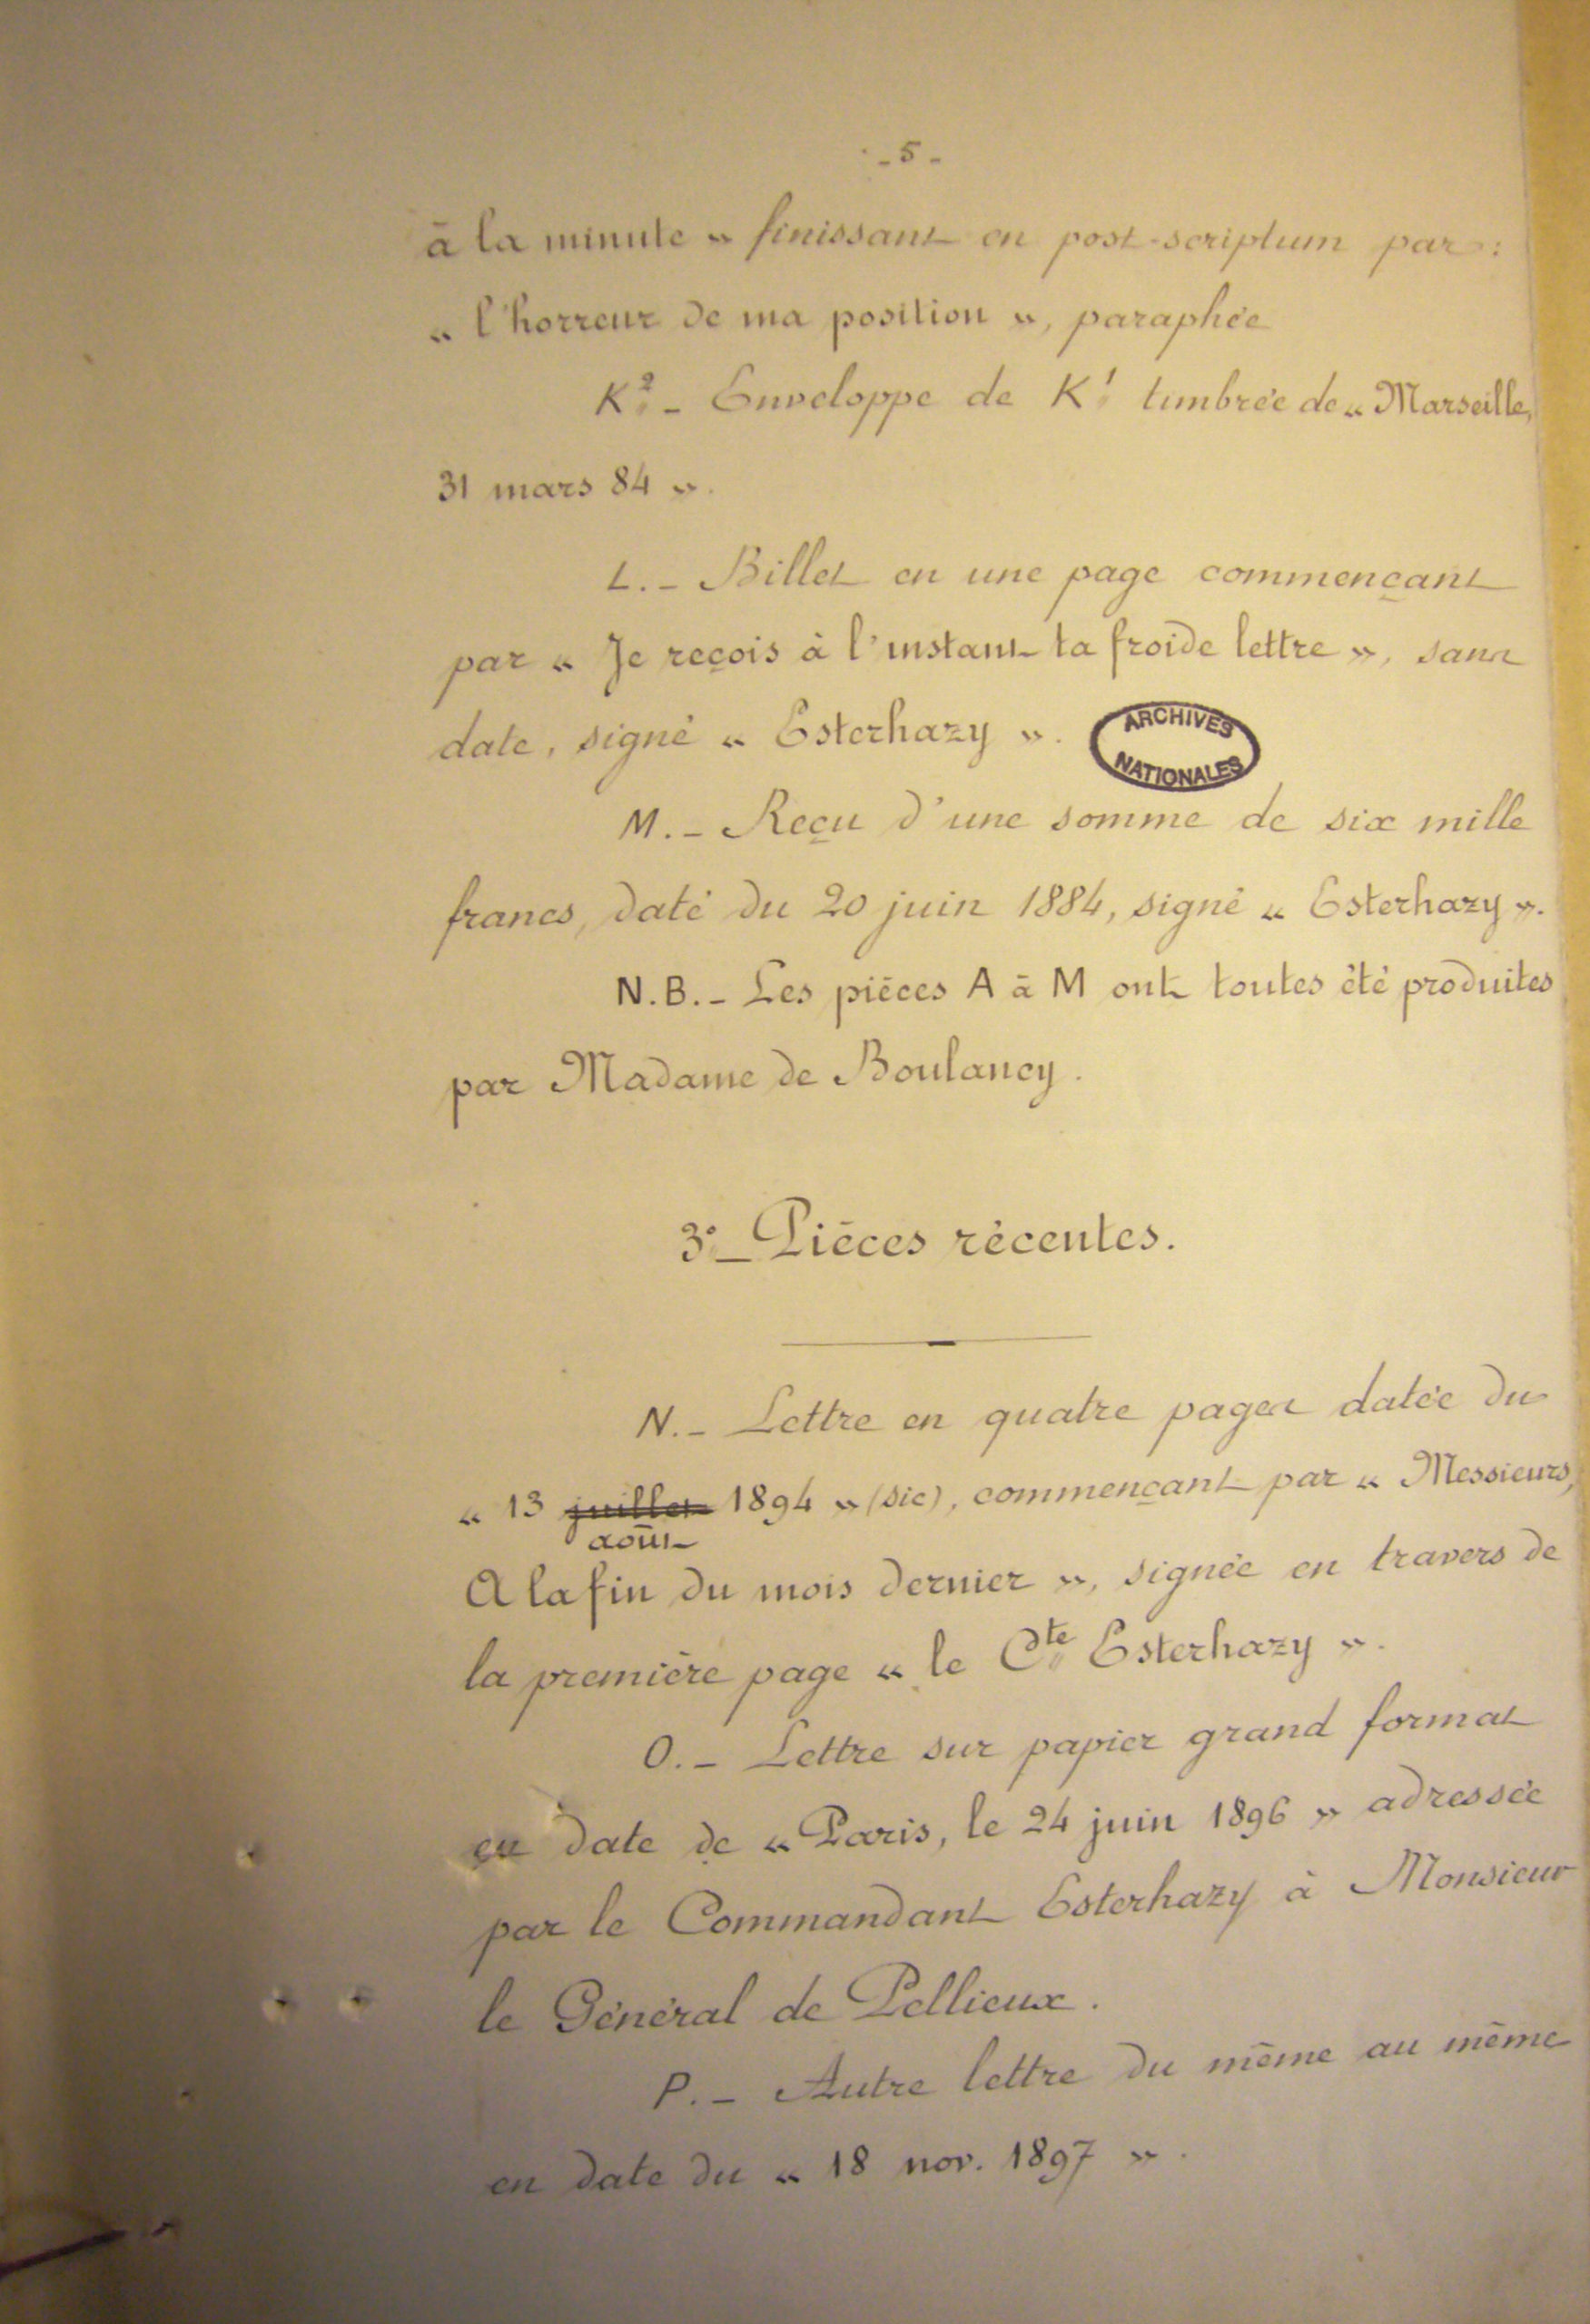 - 5 -
à la minute » finissant en post-scriptum par :
« l'horreur de ma position », paraphée
K² - Enveloppe de K¹ timbrée de « Marseille,
31 mars 84 ».
L. - Billet en une page commençant
par « Je reçois à l'instant ta froide lettre », sans
date, signé « Esterhazy ».
ARCHIVES
NATIONALES
M. - Reçu d'une somme de six mille
francs, daté du 20 juin 1884, signé « Esterhazy ».
N.B. - Les pièces A à M ont toutes été produites
par Madame de Boulancy.
3° - Pièces récentes.
N. - Lettre en quatre pages datée du
« 13 juillet 1894 » (sic), commençant par « Messieurs,
août
A la fin du mois dernier », signée en travers de
la première page « le Cte Esterhazy ».
O. - Lettre sur papier grand format
en date de « Paris, le 24 juin 1896 » adressée
par le Commandant Esterhazy à Monsieur
le Général de Pellieux.
P. - Autre lettre du même au même
en date du « 18 nov. 1897 ».